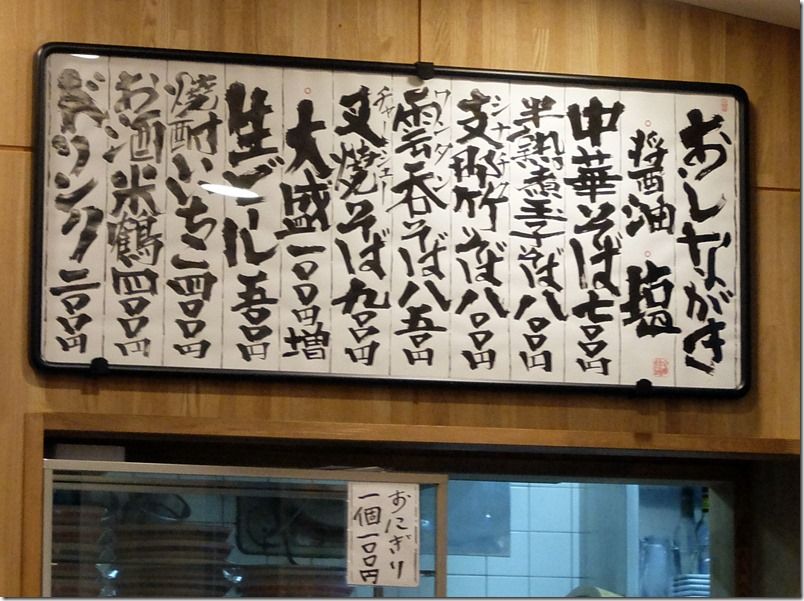 おしながき
醤油 塩
中華そば 七〇〇円
半熟煮玉子そば 八〇〇円
支那竹そば 八〇〇円
シナチク
雲呑そば 八五〇円
ワンタン
叉焼そば 九〇〇円
チャーシュー
大盛 一〇〇円増
生ビール 五〇〇円
焼酎いちこ 四〇〇円
お酒米鶴 四〇〇円
ドリンク 二〇〇円
おにぎり
一個一〇〇円